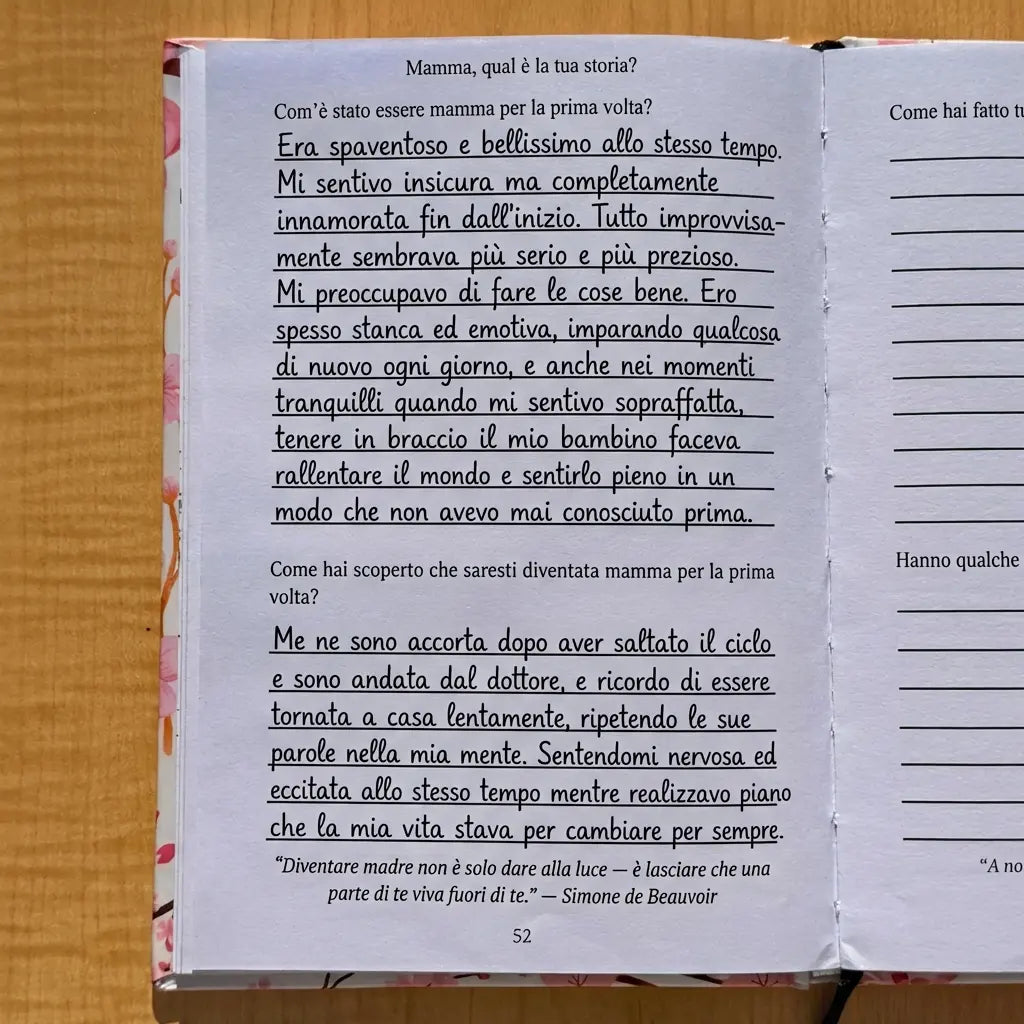 Mamma, qual è la tua storia?
Com'è stato essere mamma per la prima volta?
Era spaventoso e bellissimo allo stesso tempo.
Mi sentivo insicura ma completamente
innamorata fin dall'inizio. Tutto improvvisa-
mente sembrava più serio e più prezioso.
Mi preoccupavo di fare le cose bene. Ero
spesso stanca ed emotiva, imparando qualcosa
di nuovo ogni giorno, e anche nei momenti
tranquilli quando mi sentivo sopraffatta,
tenere in braccio il mio bambino faceva
rallentare il mondo e sentirlo pieno in un
modo che non avevo mai conosciuto prima.
Come hai scoperto che saresti diventata mamma per la prima
volta?
Me ne sono accorta dopo aver saltato il ciclo
e sono andata dal dottore, e ricordo di essere
tornata a casa lentamente, ripetendo le sue
parole nella mia mente. Sentendomi nervosa ed
eccitata allo stesso tempo mentre realizzavo piano
che la mia vita stava per cambiare per sempre.
"Diventare madre non è solo dare alla luce — è lasciare che una
parte di te viva fuori di te." — Simone de Beauvoir
52
Come hai fatto
Hanno qualche
"A